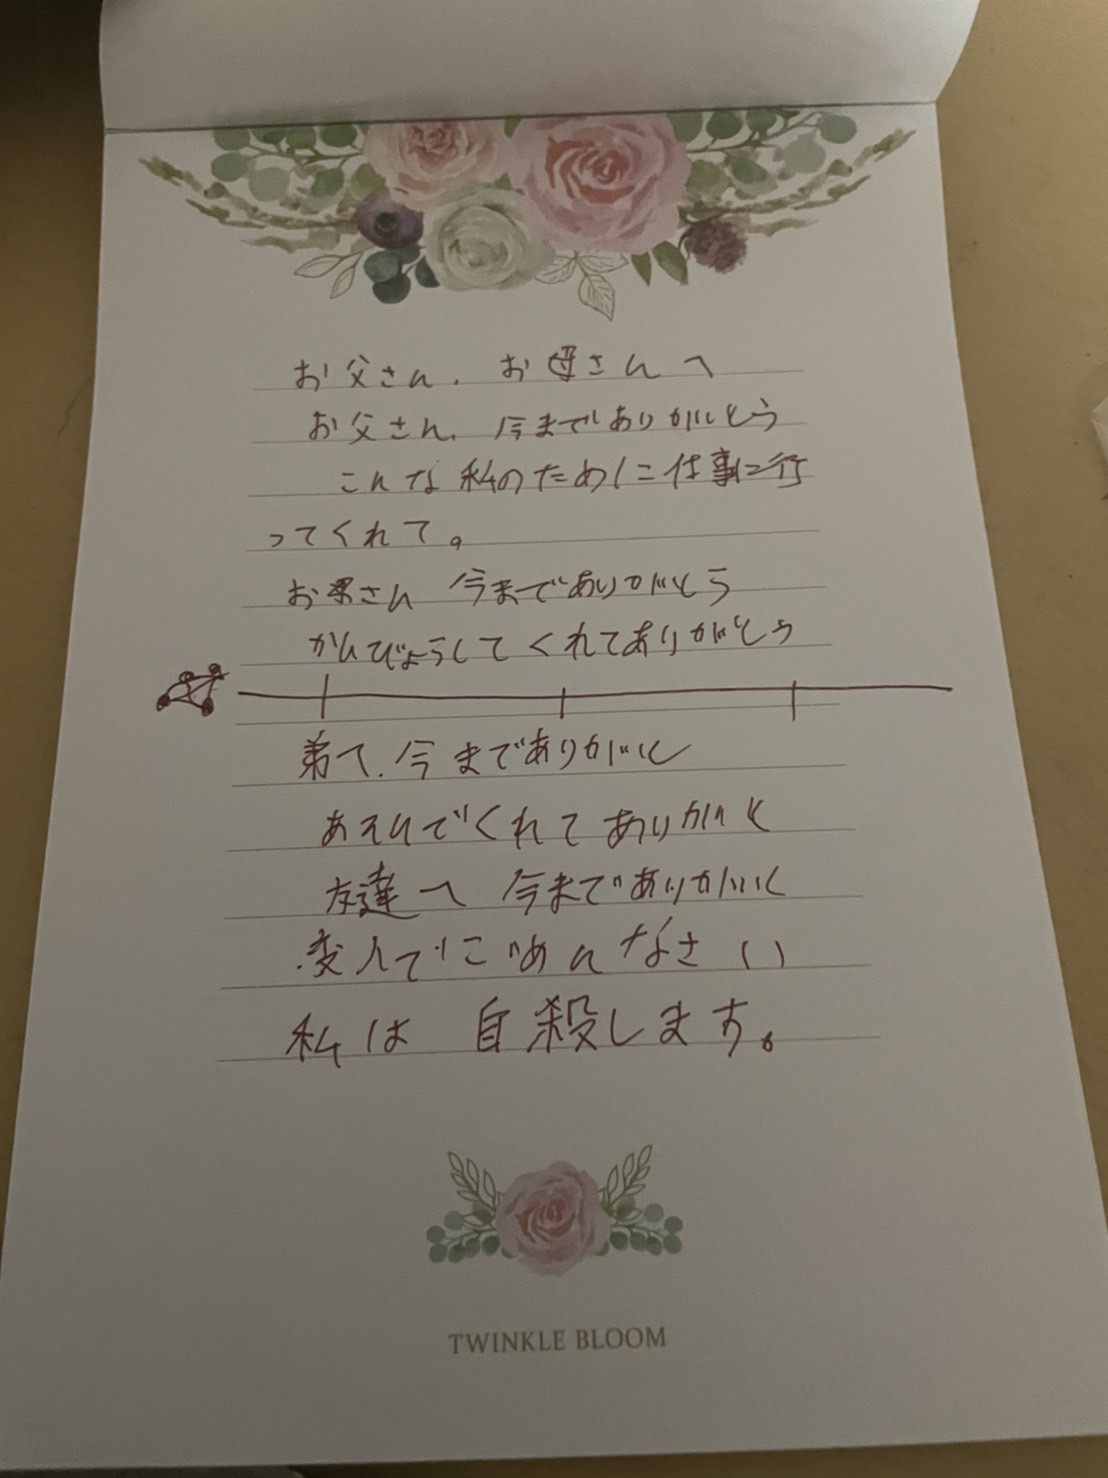 お父さん、お母さんへ
お父さん、今までありがとう
こんな私のために仕事に行
ってくれて。
お母さん 今までありがとう
かんびょうしてくれてありがとう
弟へ、今までありがと
あそんでくれてありがと
友達へ 今までありがと
変人でごめんなさい
私は 自殺します。
TWINKLE BLOOM